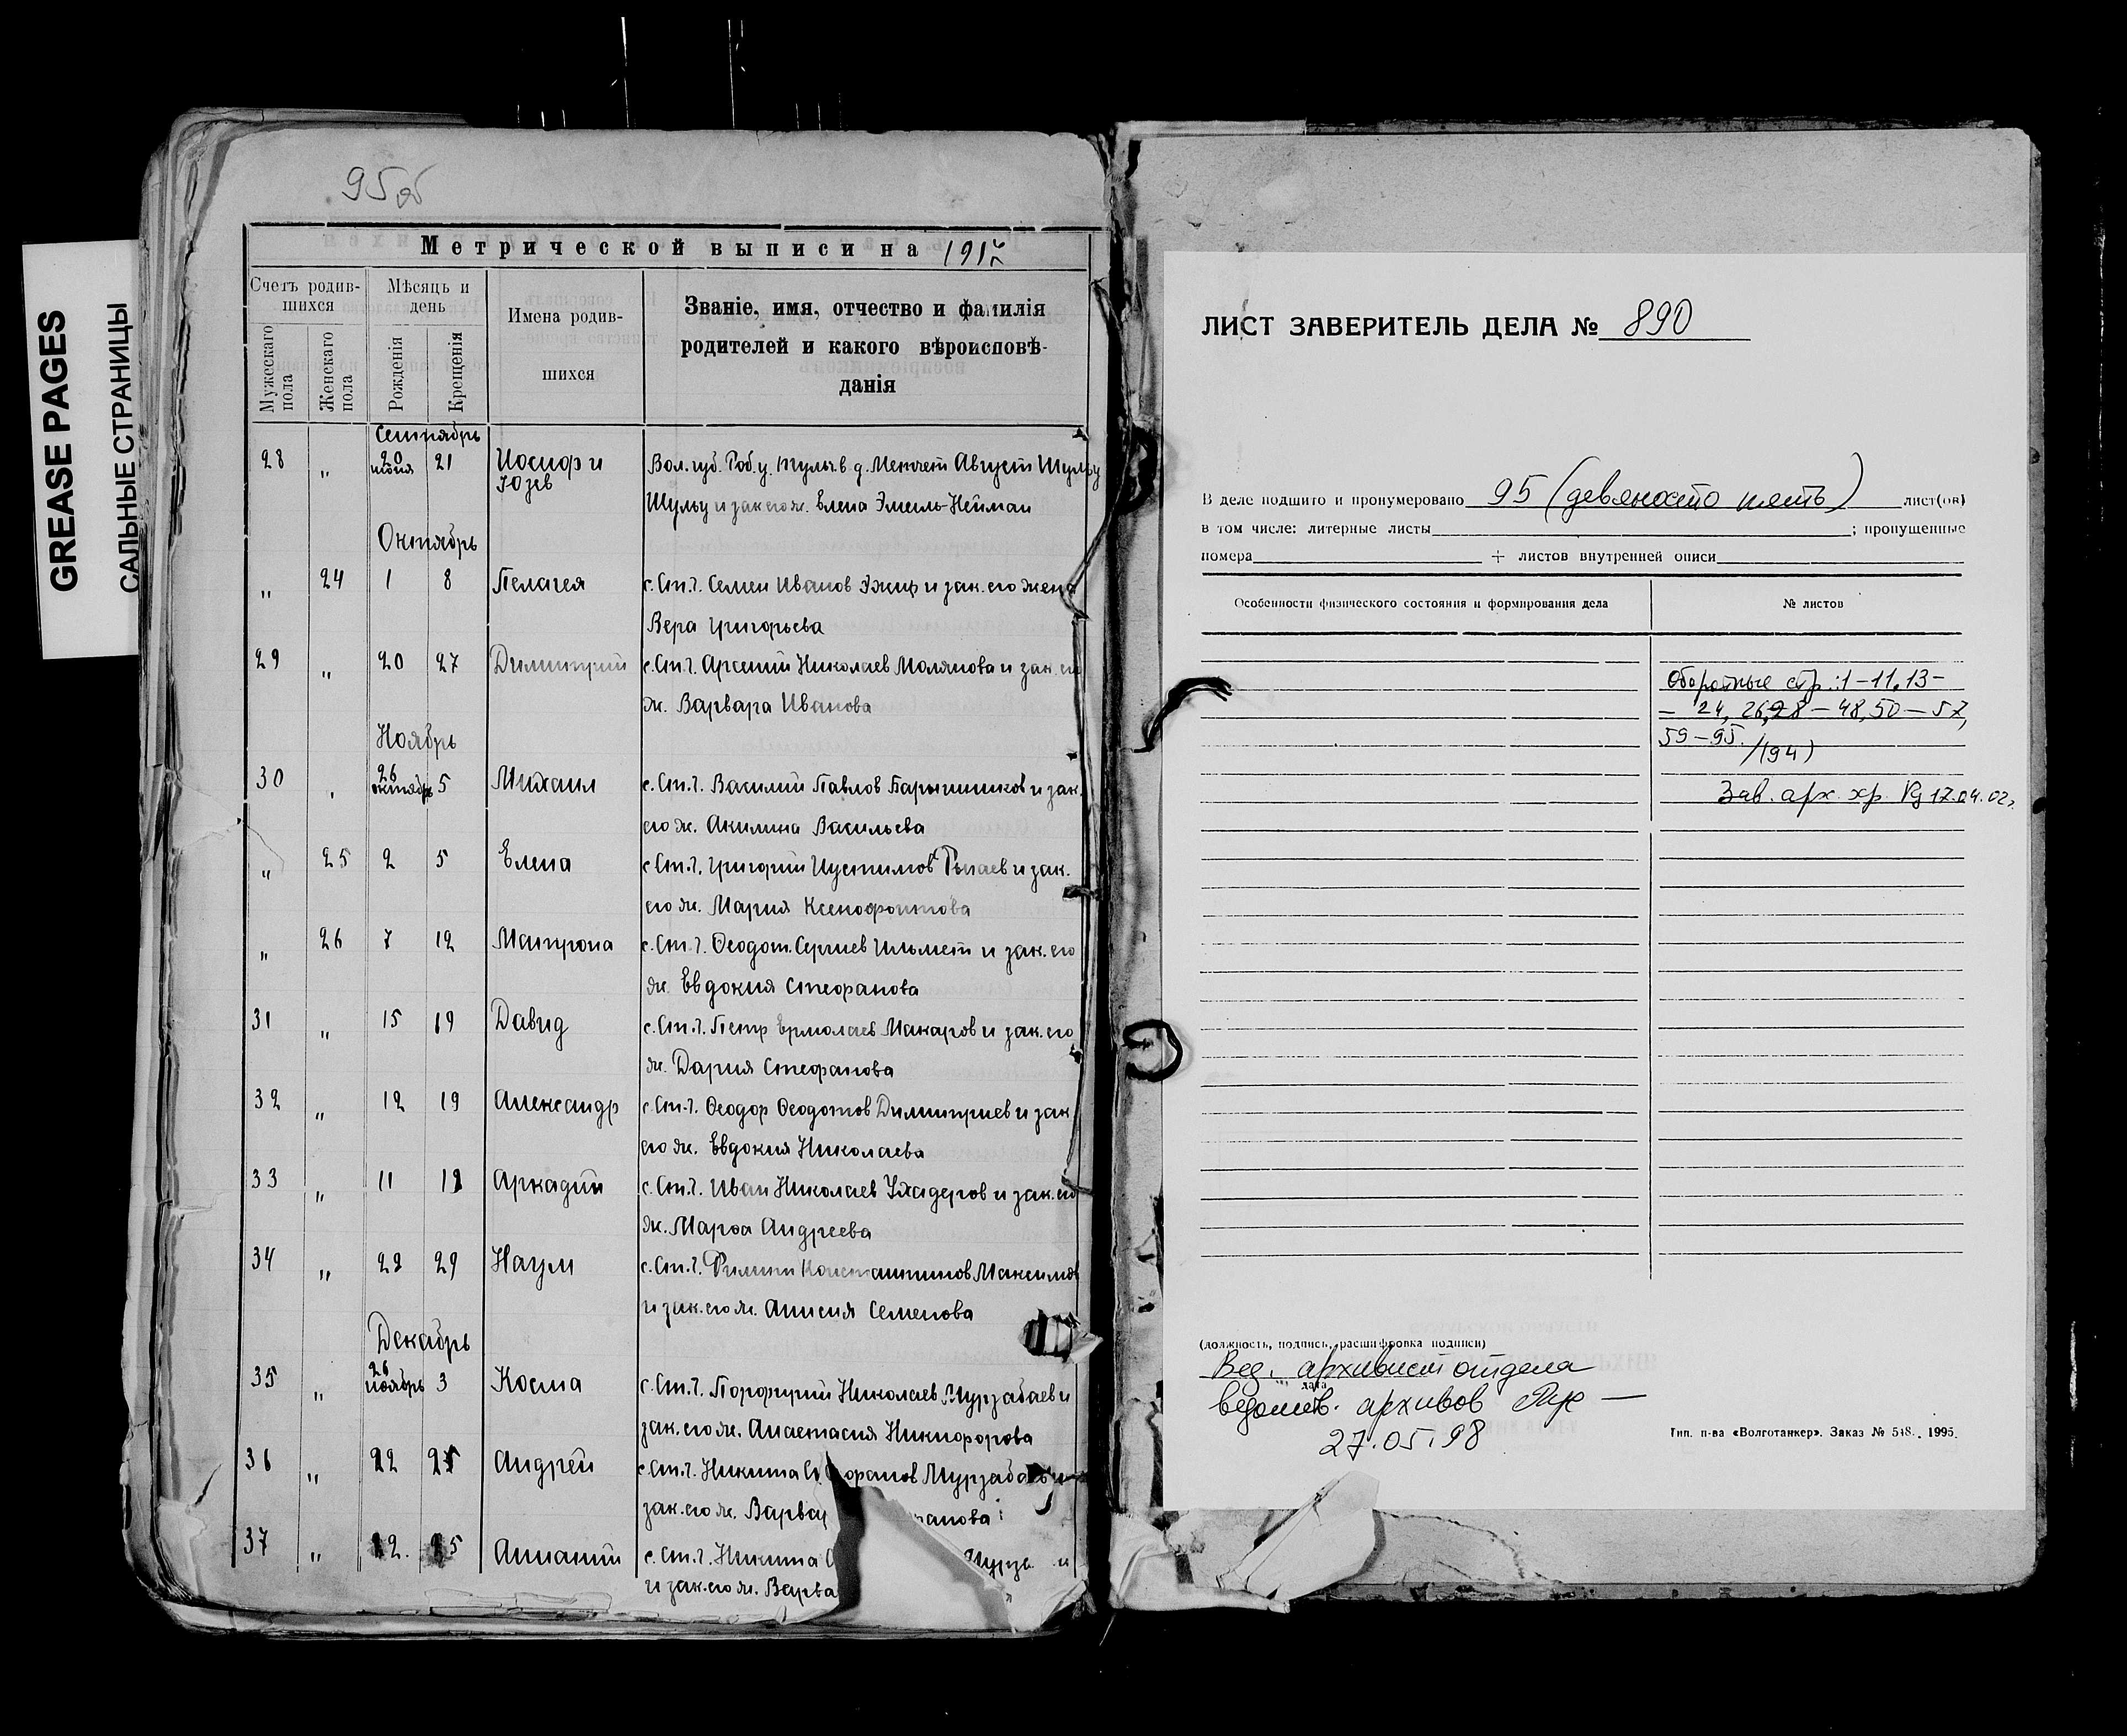 GREASE PAGES
САЛЬНЫЕ СТРАНИЦЫ
95об
Метрической выписи на 1917
Счетъ родив-
шихся
Мѣсяць и
день
Имена родив-
шихся
Званіе, имя, отчество и фамилія
родителей и какого вѣроисповѣ-
данія
Мужескаго
пола
Женскаго
пола
Рожденія
Крещенія
Сентябрь
28 „ 20 июня 21 Иосиф и Вол. губ. в д. Август Шульц
Юзев Шульц и зак его ж. Елена Эмель-Нейман
Октябрь
„ 24 1 8 Пелагея с. Ст. Ч. Семен Иванов и зак. его жена
Вера Григорьева
29 „ 20 27 Димитрий с. Ст. Ч. Арсений Николаев и зак его
ж. Варвара Иванова
Ноябрь
30 „ 26 октября 5 Михаил с. Ст. Ч. Василий Павлов Барышников и зак.
его ж. Акилина Васильева
„ 25 2 5 Елена с. Ст. Ч. Григорий Иустинов и зак.
его ж. Мария Ксенофонтова
„ 26 7 12 Матрона с. Ст. Ч. Феодот. Сергиев Ильмент и зак. его
ж. Евдокия Стефанова
31 „ 15 19 Давид с. Ст. Ч. Петр Ермолаев Макаров и зак. его
ж. Дария Стефанова
32 „ 12 19 Александр с. Ст. Ч. Феодор Феодотов Димитриев и зак
его ж. Евдокия Николаева
33 „ 11 19 Аркадий с. Ст. Ч. Иван Николаев и зак. его
ж. Марфа Андреева
34 „ 22 29 Наум с. Ст. Ч. Филипп Константинов Максимов
и зак. его ж. Анисия Семенова
Декабрь
35 „ 26 ноябрь 3 Косма с. Ст. Ч. Порфирий Николаев Мурзабаев и
зак. его ж. Анастасия Никифорова
36 „ 22 25 Андрей с. Ст. Ч. Никита Мурзабаев и
зак. его ж.
37 „ 22. 25 Ананий с. Ст. Ч. Никита
и зак. его ж.
ЛИСТ ЗАВЕРИТЕЛЬ ДЕЛА № 890
В деле подшито и пронумеровано 95 (девяносто пять) лист(ов)
в том числе: литерные листы ; пропущенные
номера + листов внутренней описи
Особенности физического состояния и формирования дела
№ листов
Оборотные стр.: 1-11, 13-
- 24, 26, 28 - 48, 50 - 57,
59 - 95.
/(94)
Зав. арх. хр. 17.04.02г.
(должность, подпись, расшифровка подписи)
Вед. архивист отдела
дата
ведомств. архивов
27.05.98
Тип. п-ва «Волготанкер». Заказ № 548. 1995.